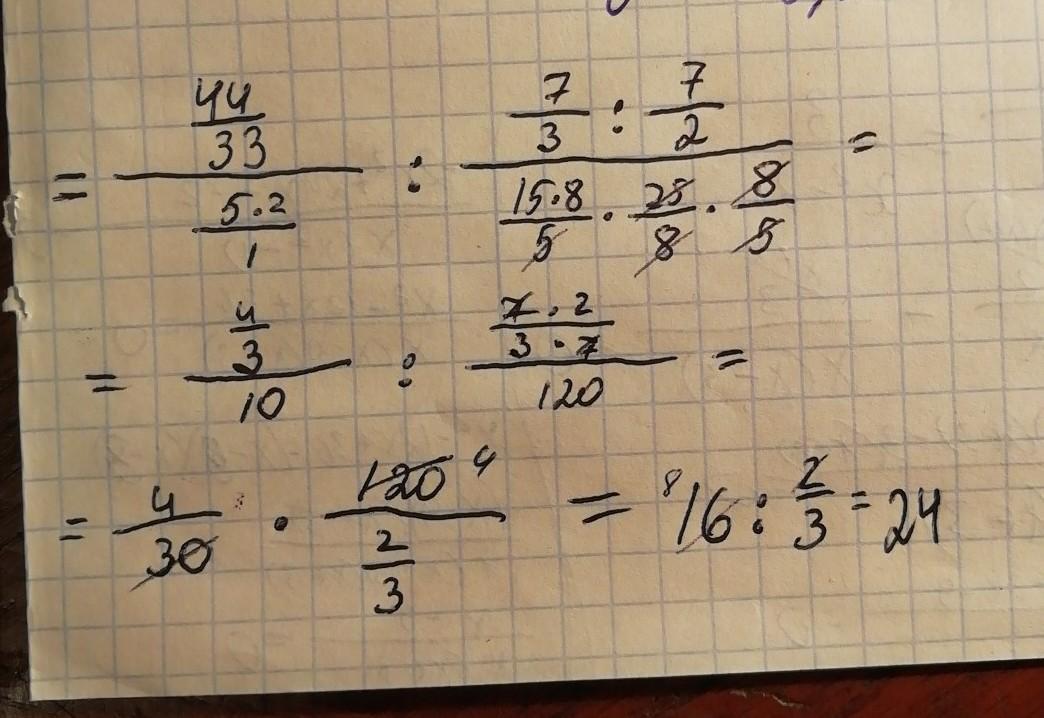 = 44/33 / (5·2/1) : (7/3 : 7/2) / (15·8/5 · 25/8 · 8/5) =
= 4/3 / 10 : (7·2 / 3·7) / 120 =
= 4/30 · 120 4 / (2/3) = 8 16 : 2/3 = 24